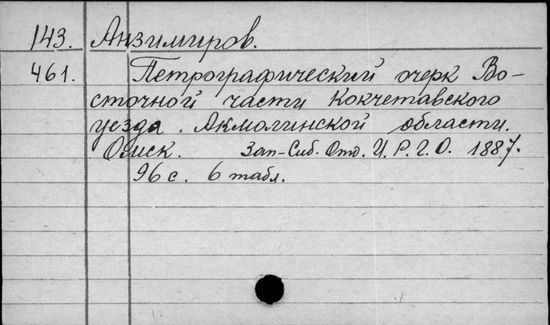 143. Анзимиров.
461. Петрографический очерк Во-
сточной части Кокчетавского
уезда. Акмолинской области.
Омск. Зап-Сиб. Отд. И. Р. Г. О. 1887.
96 с. 6 табл.